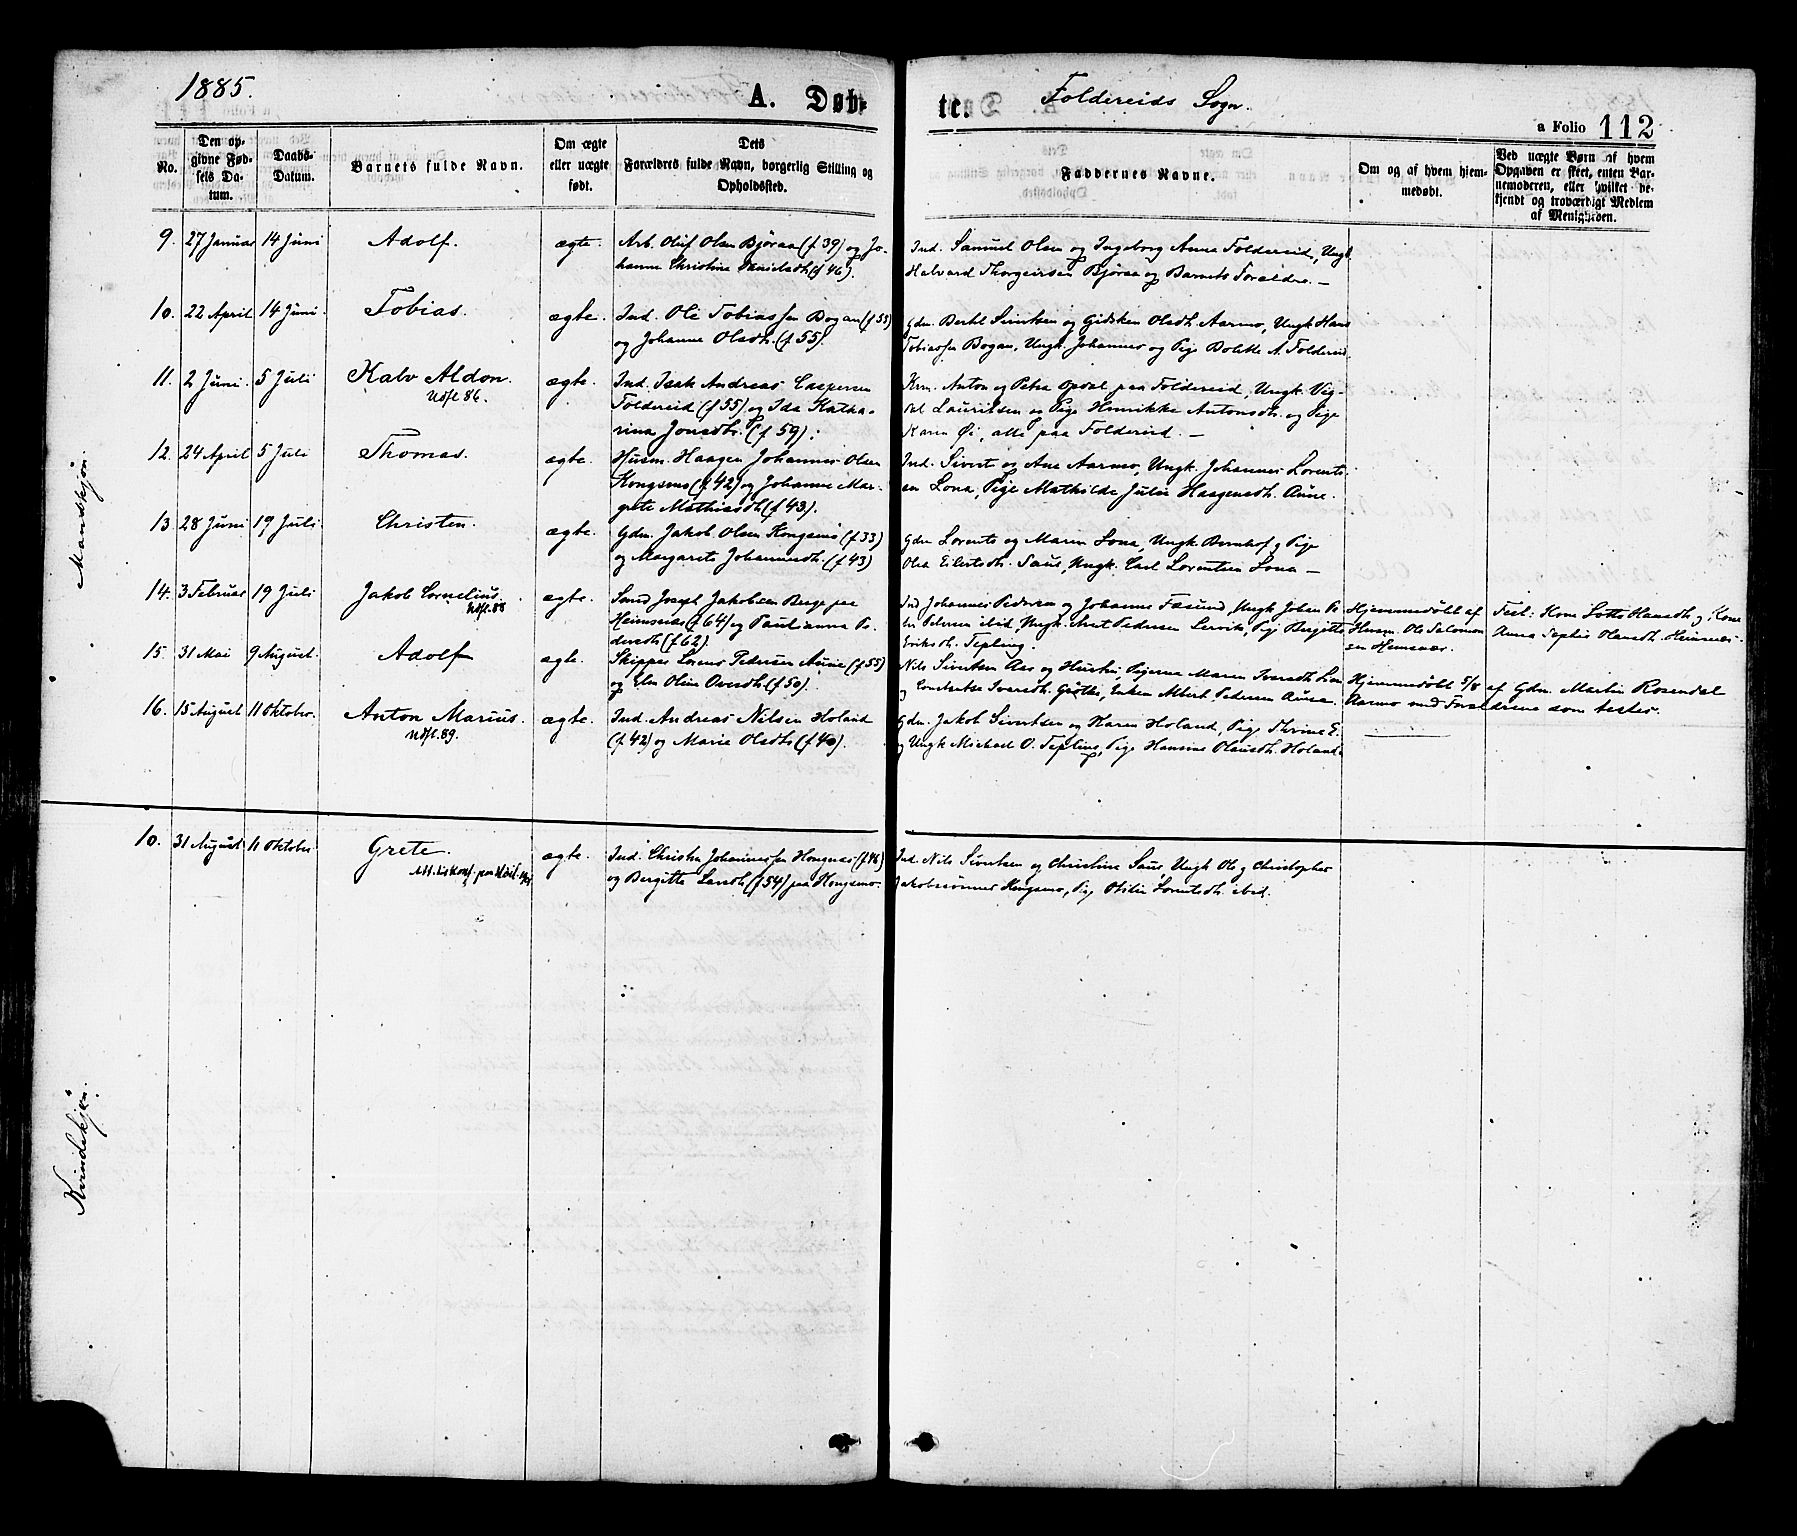 1885.
A. Døb-
te.
Foldereids Sogn.
a Folio 112
No.
Den op-
givne Fød-
sels Da-
tum.
Daabs-
Datum.
Barnets fulde Navn.
Om ægte
eller uægte
født.
Dets
Forældres fulde Navn, borgerlig Stilling og
Opholdssted.
Faddernes Navne.
Om og af hvem hjem-
medøbt.
Ved uægte Børn af hvem
Opgaven er skeet, enten Bar-
nemoderen, eller hvilket be-
kjendt og troværdigt Medlem
af Menigheden.
Mandskjøn.
9. 27 Januar 14 Juni Adolf. ægte. Arb. Oluf Olsen Bjøraa (f 39) og Jo-
hanne Christine Danielsdh (f 46).
Ind. Samuel Olsen og Ingeborg Anna Foldereid, Ungk.
Halvard Thorgeirsen Bjøraa og Barnets Forældre. —
10. 22 April 14 Juni. Tobias. ægte. Ind. Ole Tobiassen Bogan (f 55)
og Johanna Olsdh. (f 55).
Gdm. Bertel Sivertsen og Gidsken Olsdh. Aarmo, Ungk Hans
Tobiassen Bogan, Ungk. Johannes og Pige Bolette A. Foldereid.
11. 2 Juni. 5 Juli Kalv Aldon. ægte. Ind. Isak Andreas Caspersen
Udfl 86.
Foldereid (f 55) og Ida Katha-
rina Jonsdh. (f 59).
Krm. Anton og Petra Opdal paa Foldereid, Ungk. Vig-
Lauritsen og Pige Henrikke Antonsdh. og Pige
Karen Øi, alle paa Foldereid. —
12. 24 April 5 Juli Thomas. ægte. Husm. Haagen Johannes Olsen
Kongsmo (f. 42) og Johanna Mar-
grete Mathiasdh (f 43).
Ind. Sivert og Ane Aarmo, Ungk. Johannes Lorents-
en Lona, Pige Mathilde Julie Haagensdh. Aune.
13. 28 Juni 19 Juli. Christen. ægte. Gdm. Jakob Olsen Kongsmo (f 33)
og Margarete Johannesdh. (f 43)
Gdm Lorents og Maren Lona, Ungk. Bernhof og Pige
Olea Eilertsdh. Saus, Ungk. Carl Lorentsen Lona —
14. 3 Februar 19 Juli Jakob Cornelius. ægte. Josef Jakobsen Berge paa
Udfl. 88
Heimsnæs (f 64) og Paulianna Pe-
dersdh (f 62)
Ind Johannes Pedersen og Johanna Fæsund, Ungk Johan Pe-
ter Pedersen ibid, Ungk. Pedersen Lervik, Pige Birgitte
Eriksdh. Tepling.
Hjemmedøbt af
Husm. Ole Salomon
sen Heimsnæs.
Test.: Kone Hansdh og Kone
Anna Sophie Olausdh Heimnæs.
15. 31 Mai 9 August. Adolf ægte. Skipper Lorens Pedersen Aune (f 55)
og Elen Oline Oversdh (f 50).
Nils Sivertsen Aas og Hustru, Pigerne Maren Iversdh Lona
og Iversdh. Grøtte, Enken Pedersen Aune.
Hjemmedøbt 5/8 af Gdm. Martin Rosendal
Aarmo med Forældrene som testes.
16. 15 August 11 Oktober. Anton Marius. ægte. Ind. Andreas Nilsen Holand
Udfl. 89.
(f. 42) og Marie Olsdh (f 40).
Gdm. Jakob Sivertsen og Karen Holand, Pige Thrine E.
og Ungk Michael O. Tepling, Pige Hansine Olausdh. Holand
Kvindekjøn.
10. 31 August 11 Oktober Grete. ægte. Ind. Christen Johannessen Kongsmo (f 46)
og Bergitte Larsdh (f 54) paa Kongsmo.
Ind. Nils Sivertsen og Christine Saus, Ungk Ole og Christopher
Jakobsønner Kongsmo, Pig Otilie Lorentsdh. ibid.